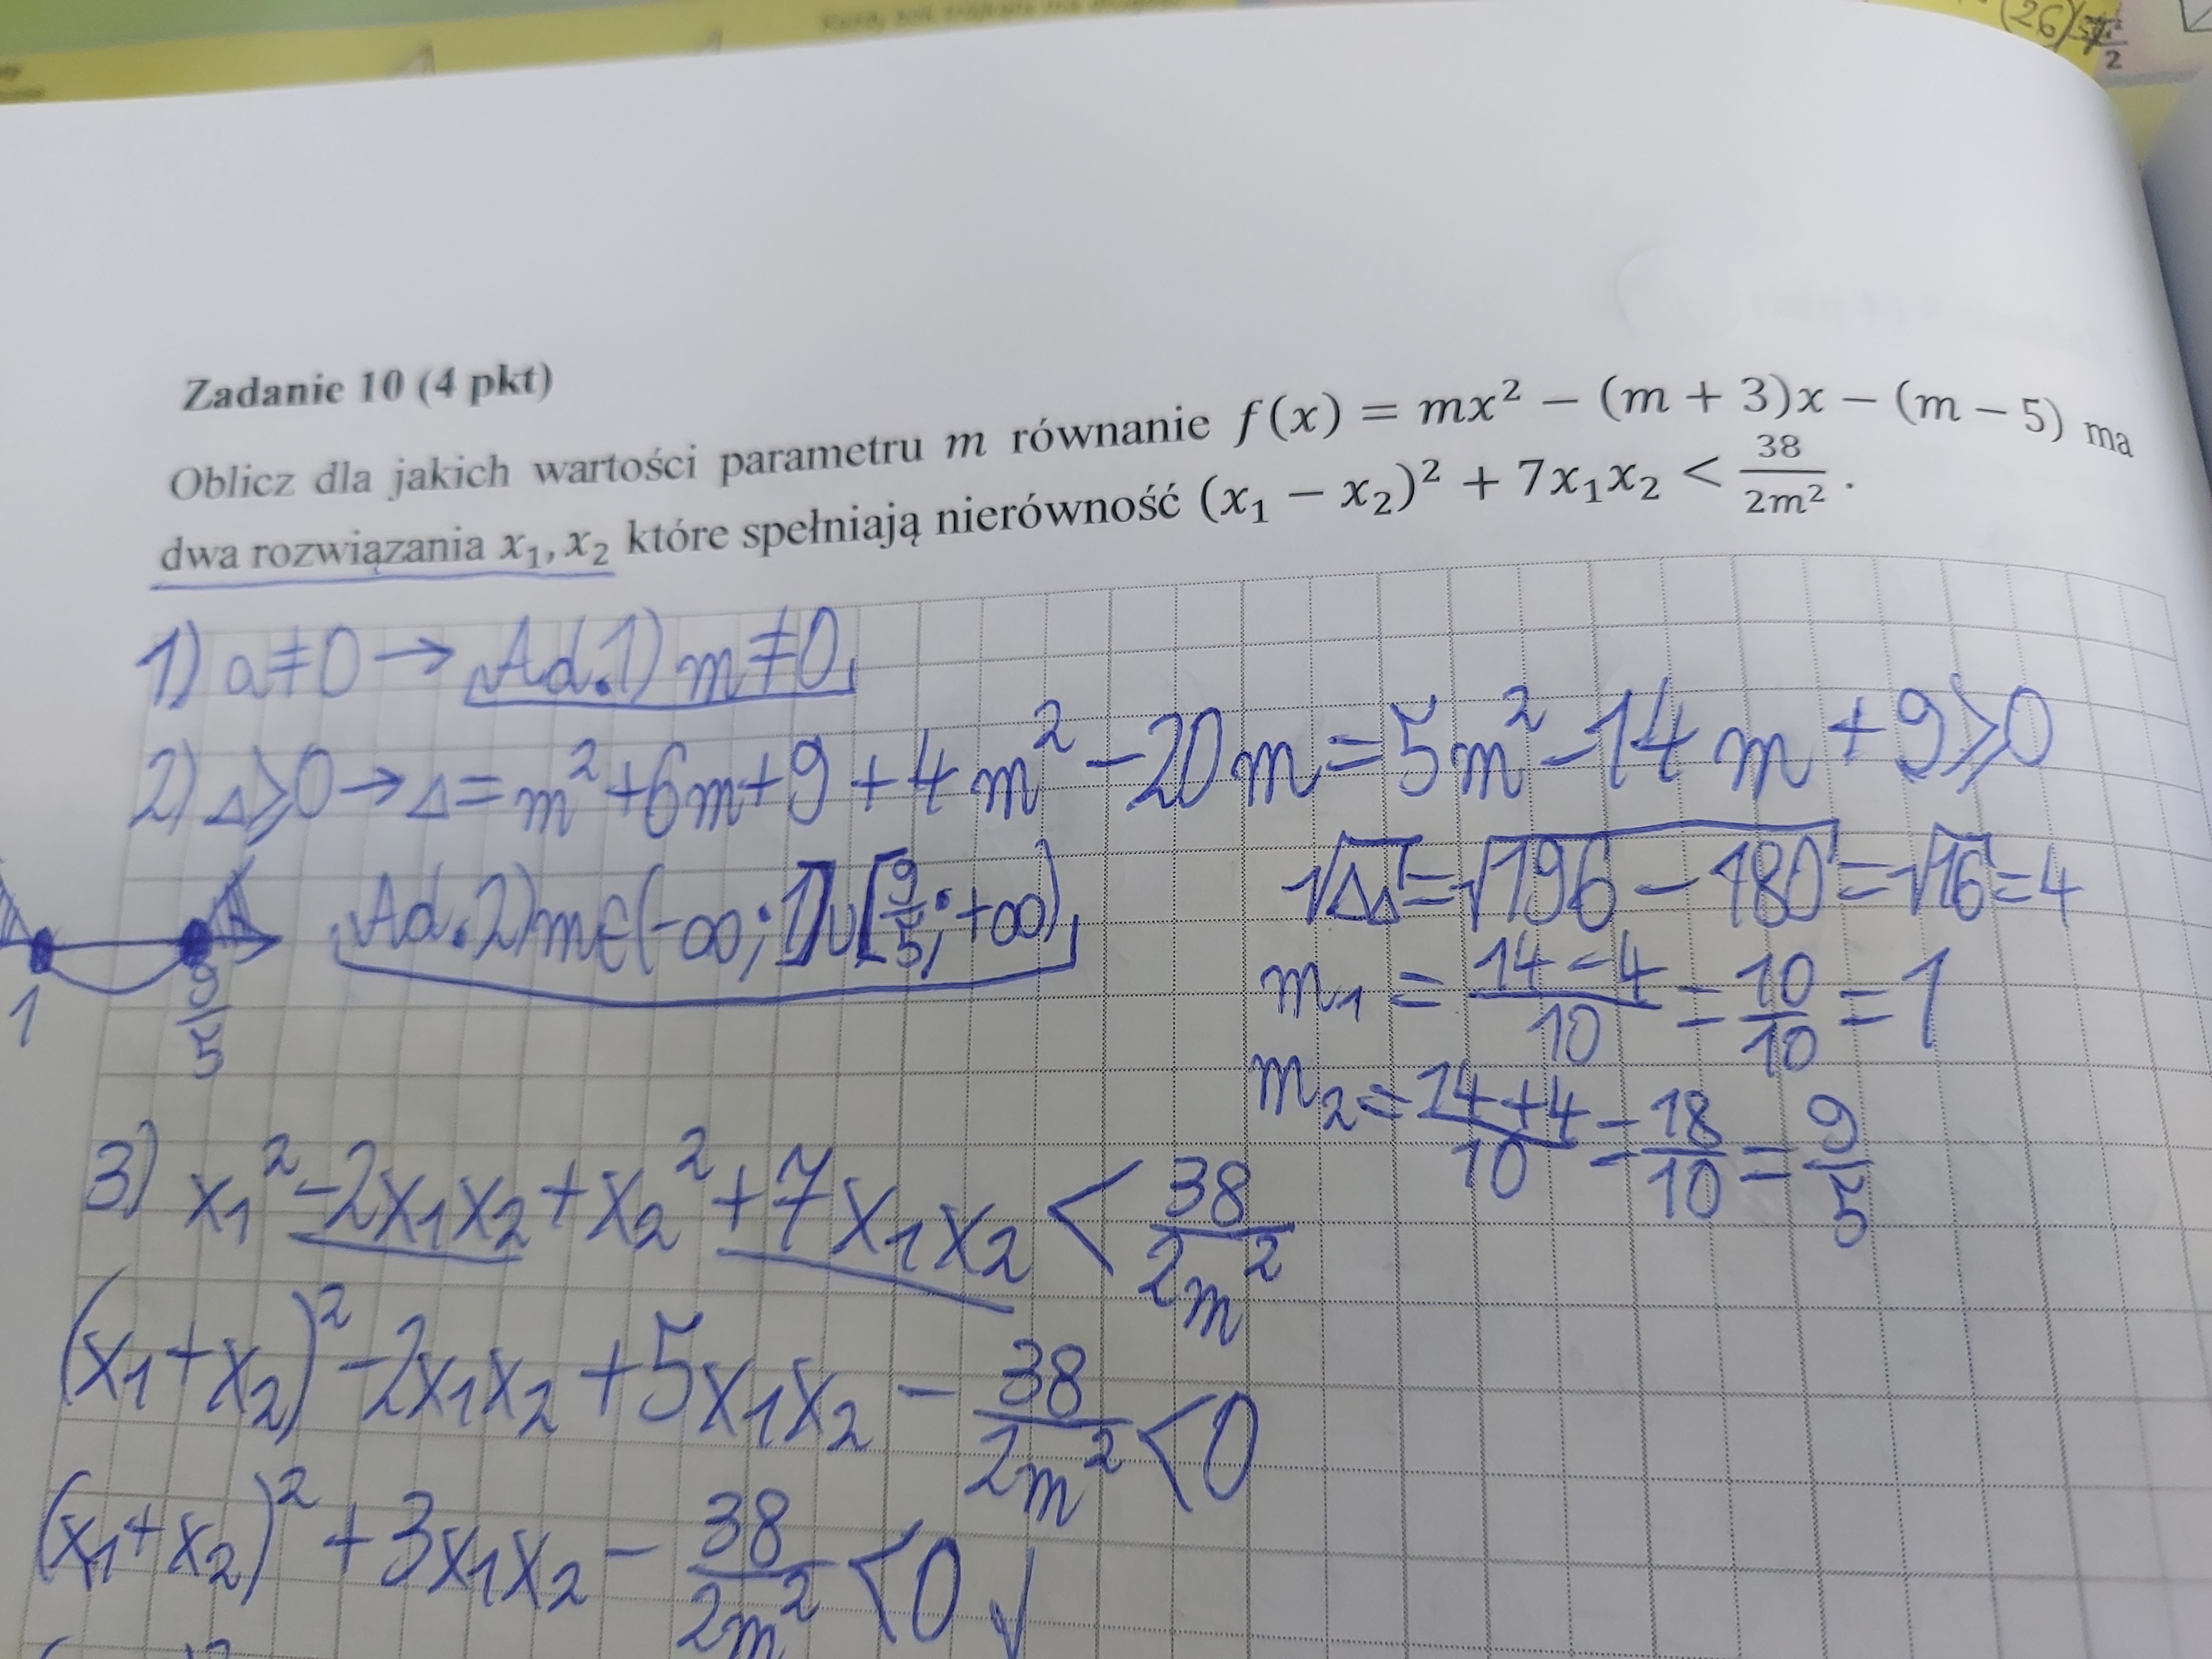 (26)
Zadanie 10 (4 pkt)
Oblicz dla jakich wartości parametru m równanie f(x) = mx² − (m + 3)x − (m − 5) ma
dwa rozwiązania x₁, x₂ które spełniają nierówność (x₁ − x₂)² + 7x₁x₂ < 38/2m² .
1) a≠0 → Ad.1) m≠0
2) Δ⩾0 → Δ = m²+6m+9+4m²−20m = 5m²−14m+9⩾0
Ad.2) m∈(−∞;1]∪[9/5;+∞)
√ΔΔ = √196−180 = √16 = 4
1
9/5
m₁ = 14−4/10 = 10/10 = 1
m₂ = 14+4/10 = 18/10 = 9/5
3) x₁²−2x₁x₂+x₂²+7x₁x₂ < 38/2m²
(x₁+x₂)²−2x₁x₂+5x₁x₂ − 38/2m² < 0
(x₁+x₂)²+3x₁x₂ − 38/2m² < 0 √